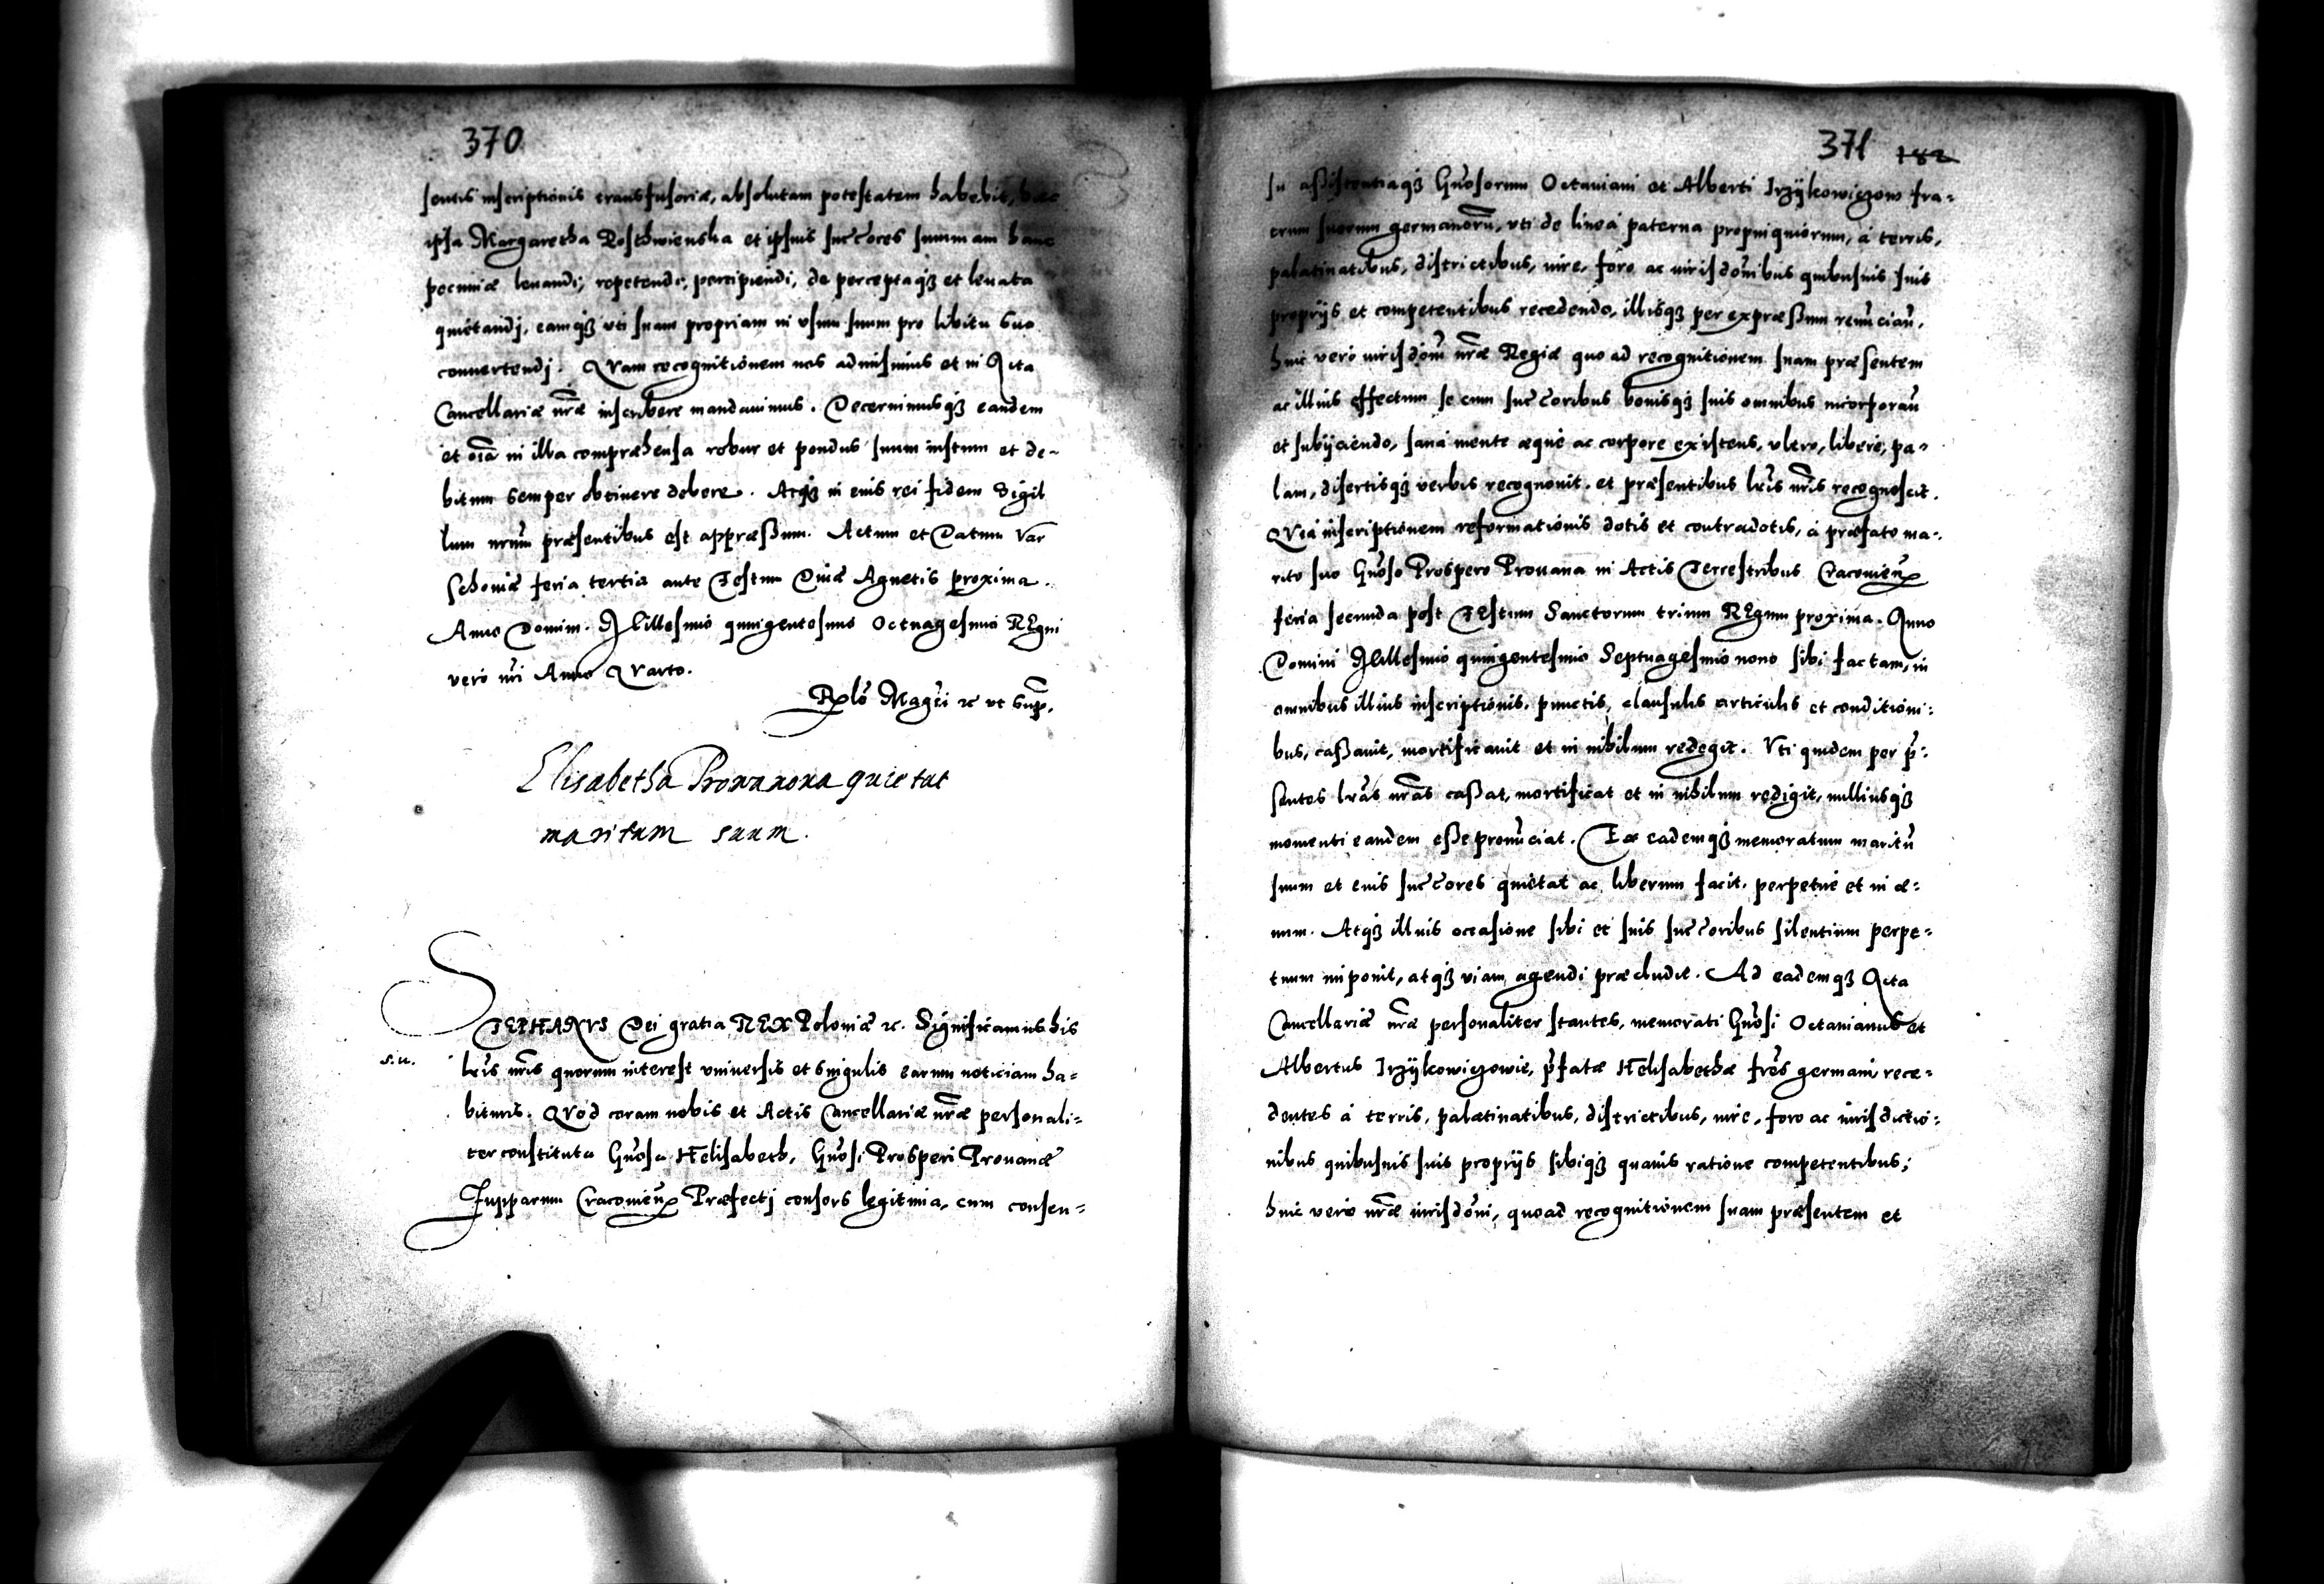 370
sentis inscriptionis transfusoriæ, absolutam potestatem habebit, hæc
ipsa Margaretha Rosthwienska et ipsius succ̄ores summam hanc
pecuniæ leuandi, repetendi, percipiendi, de perceptaq́ꝫ et leuata
quietandj, eamq́ꝫ vti suam propriam in vsum suum pro libitu suo
conuertendj. QVam recognitionem nos admisimus et in Acta
Cancellariæ nr̄æ inscribere mandauimus. Decernimusq́ꝫ eandem
et oīa in illa compræhensa robur et pondus suum iustum et de-
bitum semper obtinere debere. Atq́ꝫ in euis rei fidem Sigil
lum nrūm præsentibus est appræßum. Actum et Datum Var
schouiæ feria tertia ante Festum Diuæ Agnetis proxima.
Anno Domini Millesimo quingentesimo Octuagesimo REgni
vero nr̄i Anno QVarto.
Rl̄o Magc̄i ꝛc ut sup̄.
Elisabetha Prowanowa quietat
maritum suum.
STEPHANVS Dei gratia REX Poloniæ ꝛc. Significamus his
lr̄is nr̄is quorum interest vniuersis et singulis earum noticiam ha=
bituris. QVod coram nobis et Actis Cancellariæ nr̄æ personali=
ter constituta Gn̄osa Helisabeth, Gn̄osi Prosperi Prouanæ
Zupparum Cracouieñ Præfectj consors legitima, cum consen=
371 182
su aßistentiaq́ꝫ Gn̄osorum Octauiani et Alberti Irzÿkowiczow fra=
trum suorum germanorū, vti de linea paterna propinquiorum, á terris,
palatinatibus, districtibus, iure, foro ac iurisdōnibus quibusuis suis
proprijs et competentibus recedendo, illisq́ꝫ per expræßum renūciañ,
huic vero iurisdōni nr̄æ Regiæ quo ad recognitionem suam præsentem
ac illius effectum se cum succ̄oribus bonisq́ꝫ suis omnibus incorporañ
et subijciendo, sana mente æque ac corpore existens, vltro, libere, pa=
lam, disertisq́ꝫ verbis recognouit, et præsentibus lr̄is nr̄is recognoscit.
QVia inscriptionem reformationis dotis et contradotis, á præfato ma=
rito suo Gn̄oso Prospero Prouana in Actis Terrestribus Cracouieñ
feria secunda post FEstum Sanctorum trium REgum proxima. Anno
Domini Millesimo quingentesimo Septuagesimo nono sibi factam, in
omnibus illius inscriptionis, punctis, clausulis articulis et conditioni=
bus, caßauit, mortificauit et in nihilum redegit. Vti quidem per p̄=
sentes lr̄as nr̄as caßat, mortificat et in nihilum redigit, nulliusq́ꝫ
momenti eandem eße pronūciat. Ex eademq́ꝫ memoratum maritū
suum et euis succ̄ores quietat ac liberum facit, perpetue et in æ=
uum. Atq́ꝫ illuis occasione sibi et suis succ̄oribus silentium perpe=
tuum imponit, atq́ꝫ viam agendi præcludit. Ad eademq́ꝫ Acta
Cancellariæ nr̄æ personaliter stantes, memorati Gn̄osi Octauianus et
Albertus Irzÿkowiczowie, p̄fatæ Helisabethæ fr̄es germani rece=
dentes á terris, palatinatibus, districtibus, iure, foro ac iurisdictio=
nibus quibusuis suis proprijs sibiq́ꝫ quauis ratione competentibus;
huic vero nr̄æ iurisdōni, quoad recognitionem suam præsentem et